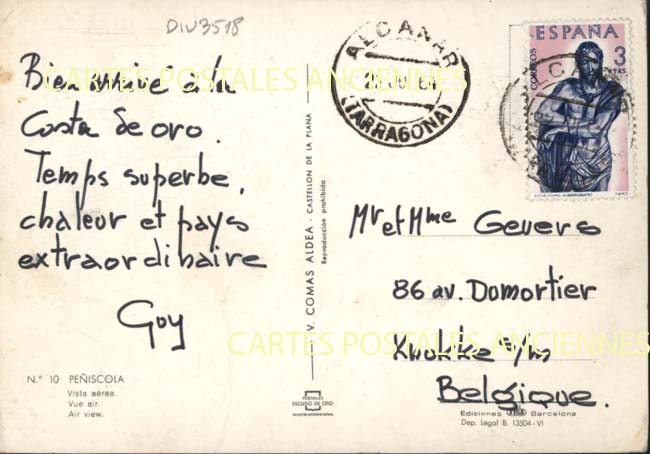 DIV3518
Bien arrivé à la
Costa de oro.
Temps superbe,
chaleur et pays
extraordinaire
Guy
N.º 10 PEÑISCOLA
Vista aérea.
Vue air.
Air view.
V. COMAS ALDEA. CASTELLON DE LA PLANA
Reproducción prohibida
POSTALES
ESCUDO DE ORO
ALCANAR
(TARRAGONA)
ESPAÑA
CORREOS
3
PTAS
F.N.M.T.
Mr et Mme Gevers
86 av. Dumortier
Knokke s/m
Belgique.
Ediciones Barcelona
Dep. Legal B. 13504-VI
CARTES POSTALES ANCIENNES
CARTES POSTALES ANCIENNES